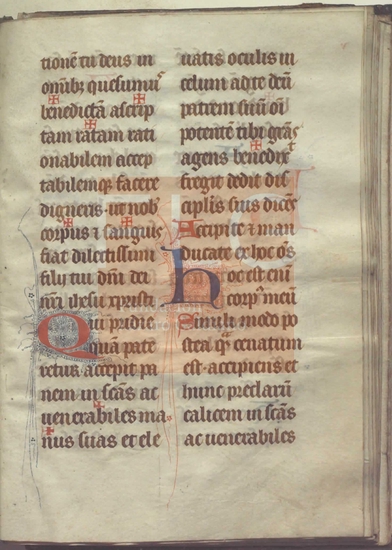 tionē tu deus in
om̄ibꝫ quesumus
benedictā ascrip
tam ratam rati
onabilem accep
tabilemqꝫ facere
digneris · ut nob
corpus ⁊ sanguis
fiat dilectissimi
filij tui dn̄i dei
nr̄i ihesu xpristi
Qui pridie
quā pate
retur accepit pa
nem in sc̄as ac
uenerabiles ma-
nus suas et ele
uatis oculis in
celum ad te deū
patrem suū om̄
potentē tibi grās
agens benedixt
fregit dedit dis
cipulis suis dicēs
Accipite ⁊ man
ducate ex hoc om̄s
hoc est eni
corpꝰ meū
Simili modo po
stea qᷓ cenatum
est · accipiens et
hunc preclarū
calicem in sc̄as
ac uenerabiles